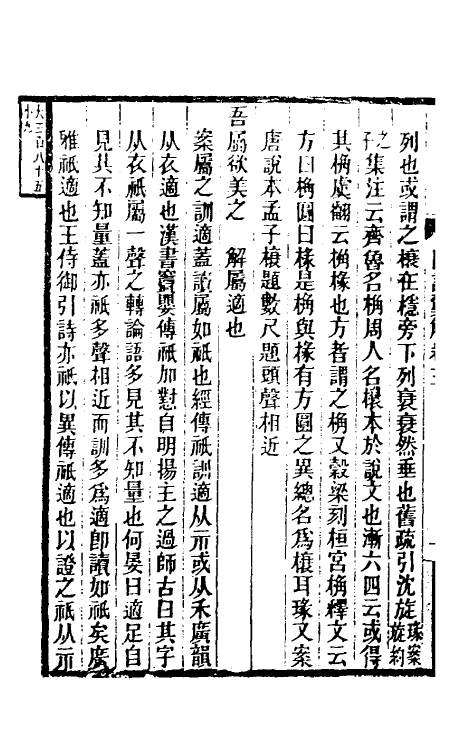 列也或謂之榱在檼旁下列衰衰然垂也舊疏引沈旋
琢案
旋約
之
子
集注云齊魯名桷周人名榱本於說文也漸六四云或得
其桷虞翻云桷椽也方者謂之桷又穀梁刻桓宮桷釋文云
方曰桷圓曰椽是桷與椽有方圓之異總名為榱耳琢又案
唐說本孟子榱題數尺題頭聲相近
吾屬欲美之 解屬適也
案屬之訓適蓋讀屬如祇也經傳祇訓適从示或从禾廣韻
从衣適也漢書竇嬰傳祇加懟自明揚主之過師古曰其字
从衣祇屬一聲之轉論語多見其不知量也何晏曰適足自
見其不知量蓋亦祇多聲相近而訓多為適卽讀如祇矣廣
雅祇適也王侍御引詩亦祇以異傳祇適也以證之祇从示
大三百八十五
小九